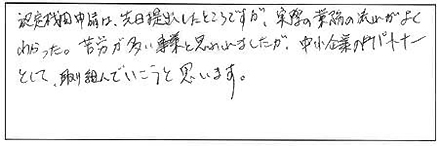 認定機関申請は、先日提出したところですが、実際の業務の流れがよく
わかった。苦労が多い事業と思われましたが、中小企業のパートナー
として、取り組んでいこうと思います。